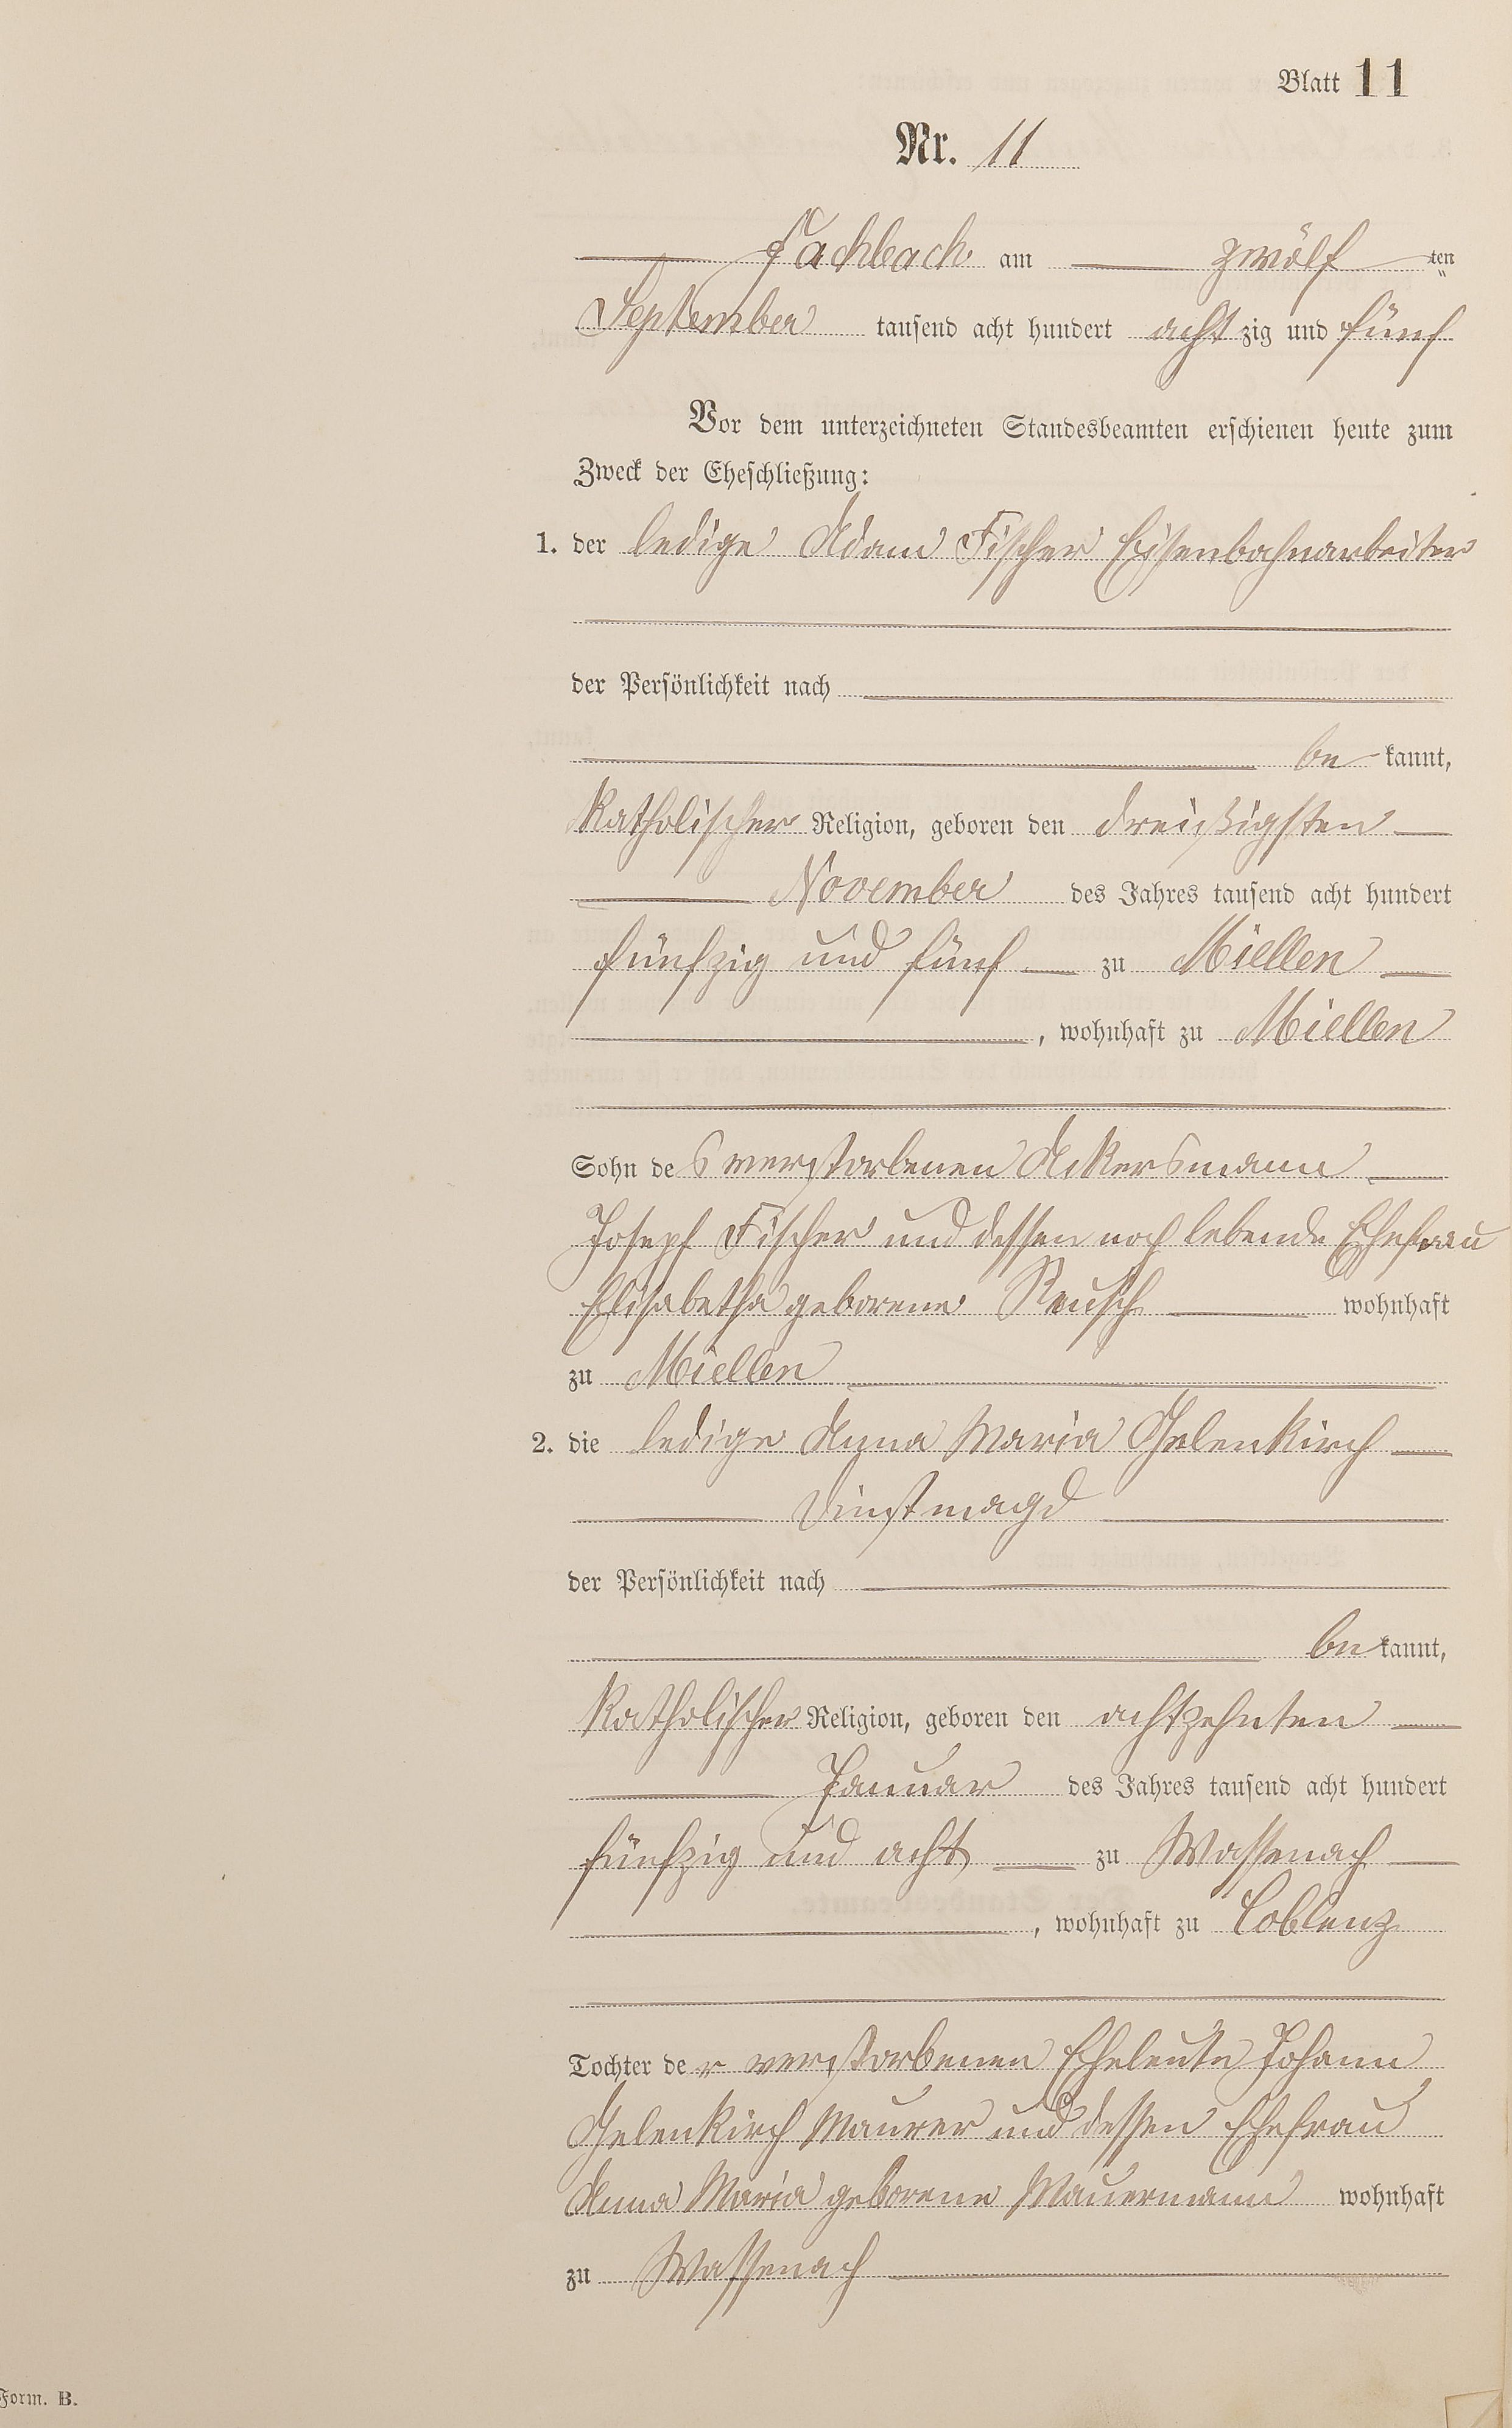 Blatt 11
Nr. 11
Fachbach am zwölf ten
September tausend acht hundert acht zig und fünf
Vor dem unterzeichneten Standesbeamten erschienen heute zum
Zweck der Eheschließung:
1. der ledige Adam Fischer Eisenbahnarbeiter
der Persönlichkeit nach
be kannt,
Katholischer Religion, geboren den dreißigsten
November des Jahres tausend acht hundert
fünfzig und fünf zu Miellen
, wohnhaft zu Miellen
Sohn des verstorbenen Ackersmann
Joseph Fischer und dessen noch lebende Ehefrau
Elisabetha geborene Reusch wohnhaft
zu Miellen
2. die ledige Anna Maria Gelenkirch
Dinstmagd
der Persönlichkeit nach
be kannt,
Katholischer Religion, geboren den achtzehnten
Januar des Jahres tausend acht hundert
fünfzig und acht zu Wassenach
, wohnhaft zu Coblenz
Tochter der verstorbenen Eheleute Johann
Gelenkirch Maurer und dessen Ehefrau
Anna Maria geborene Mauermann wohnhaft
zu Wassenach
Form. B.